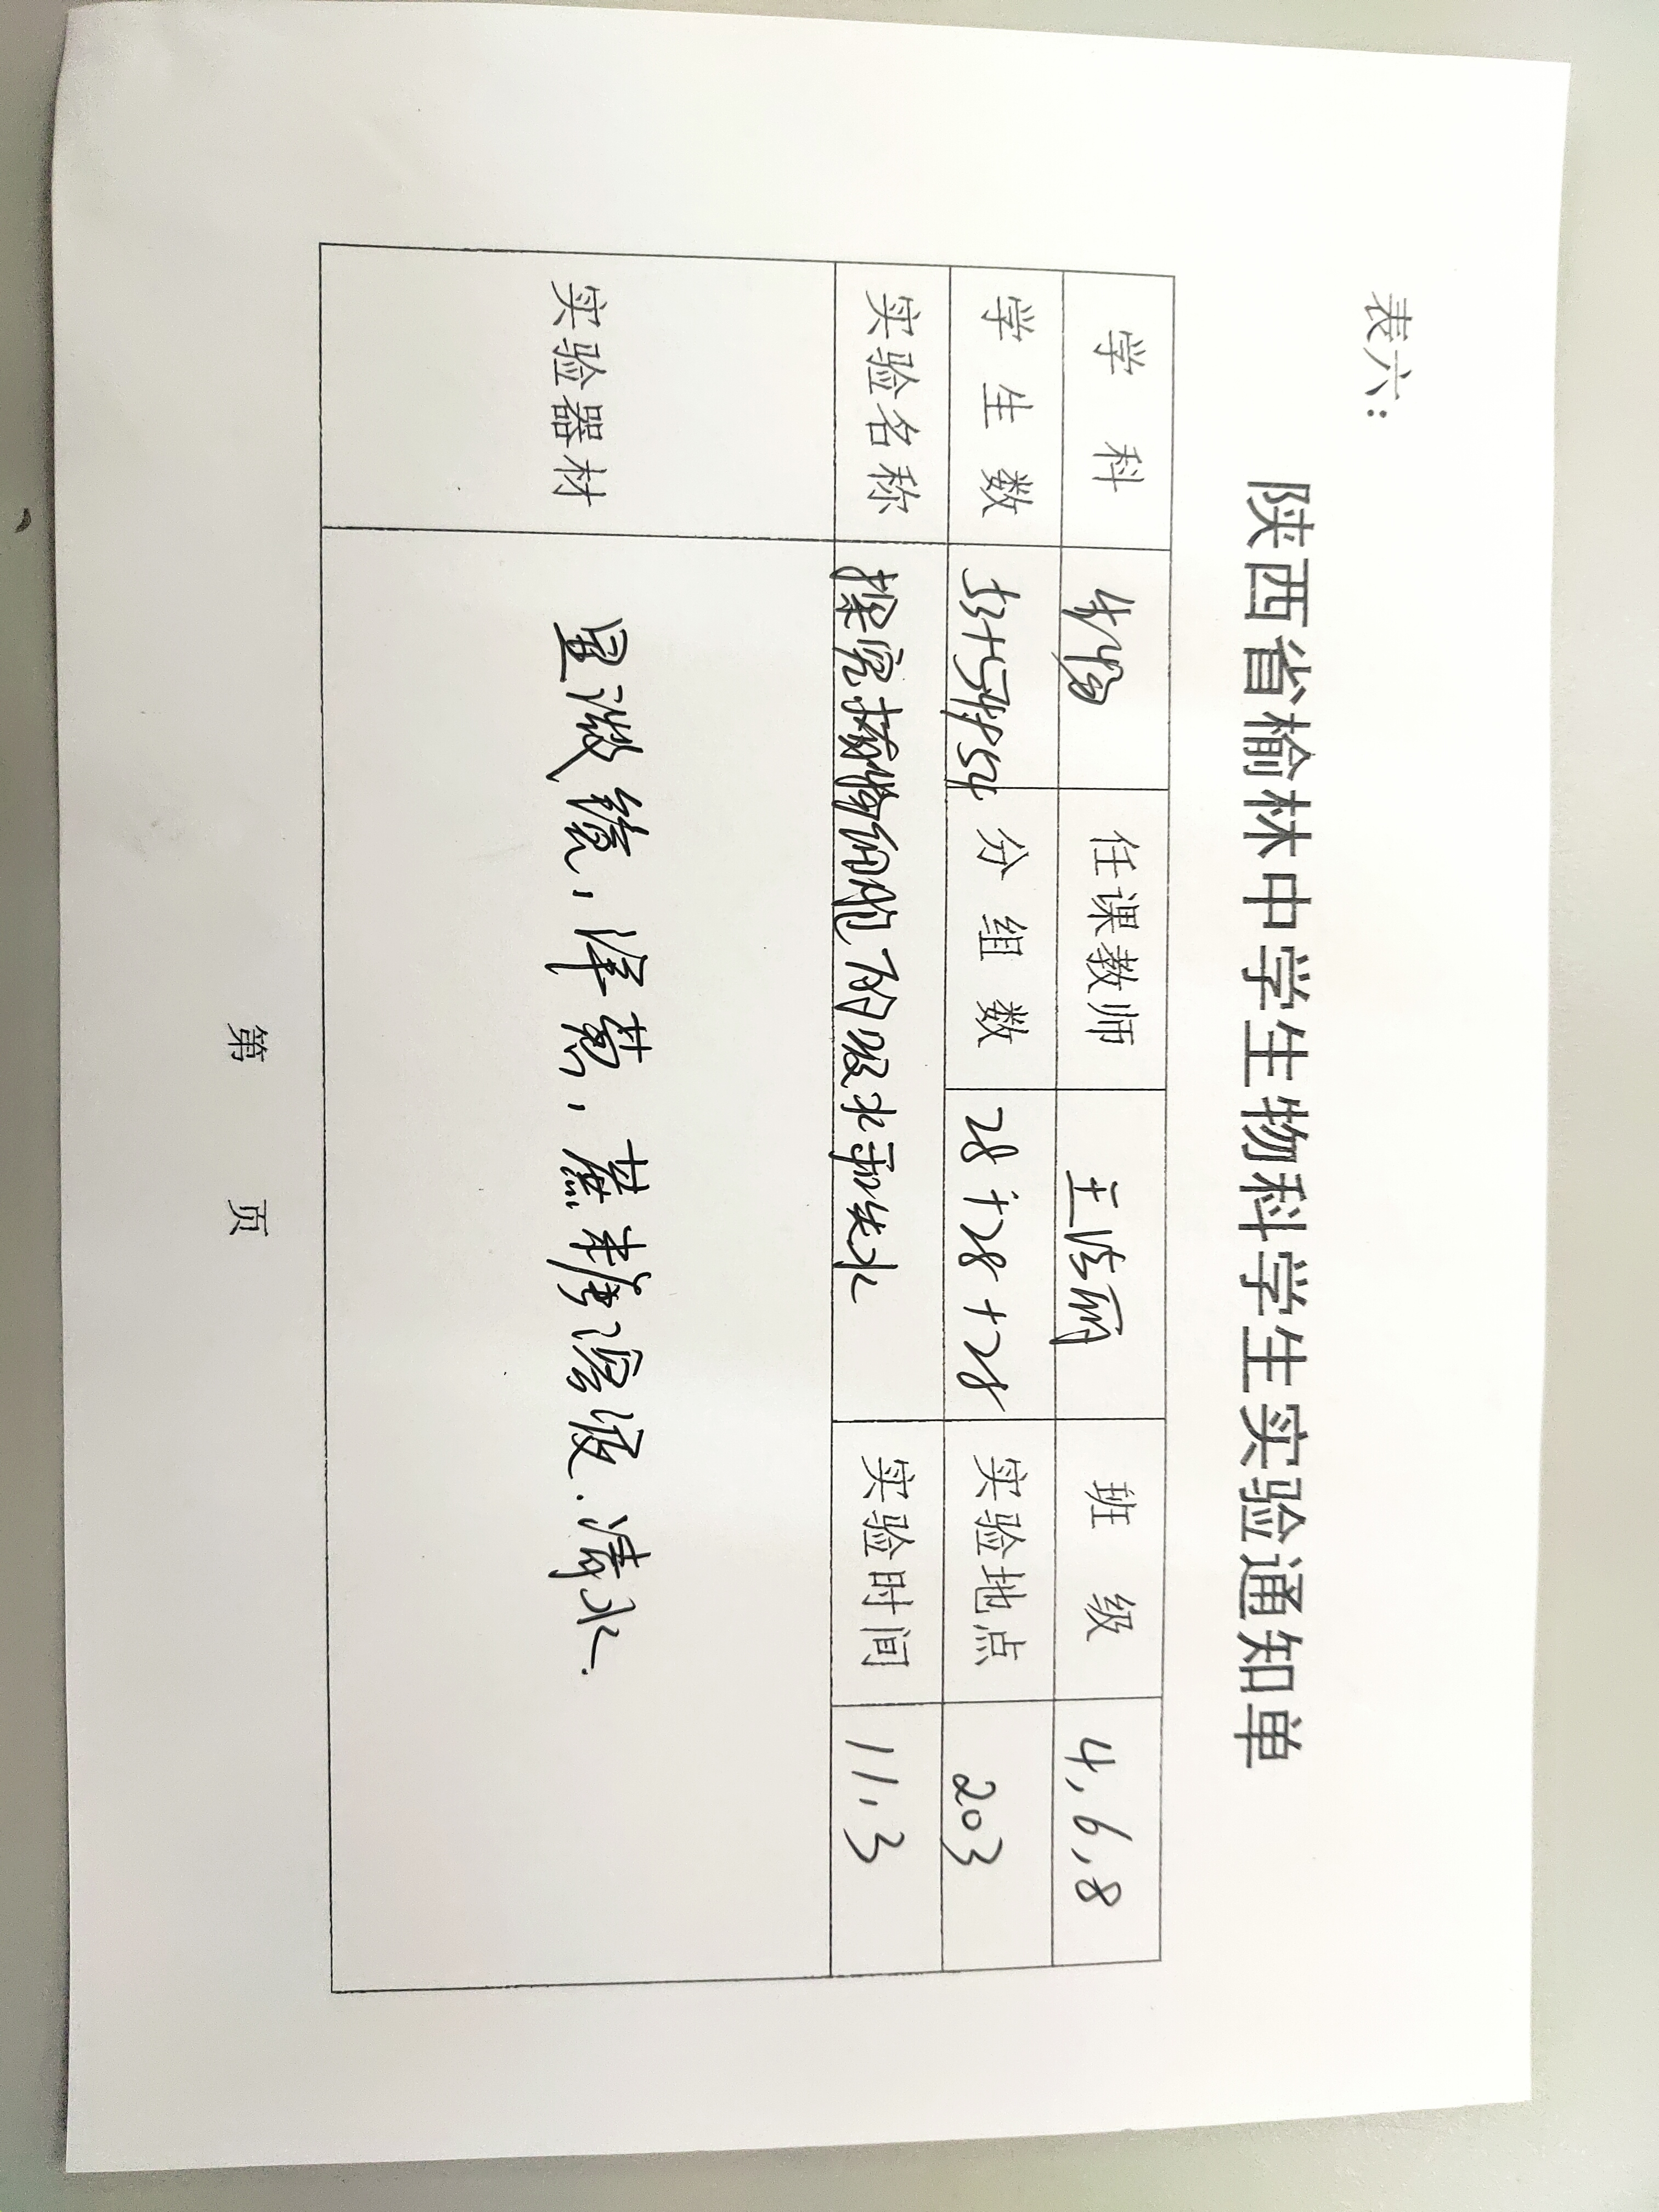 表六：
陕西省榆林中学生物科学生实验通知单
学 科 生物 任课教师 王洁丽 班 级 4,6,8
学 生 数 53+54+54 分 组 数 28+28+28 实验地点 203
实验名称 探究植物细胞的吸水和失水 实验时间 11.3
实验器材 显微镜，洋葱，蔗糖溶液.清水.
第 页